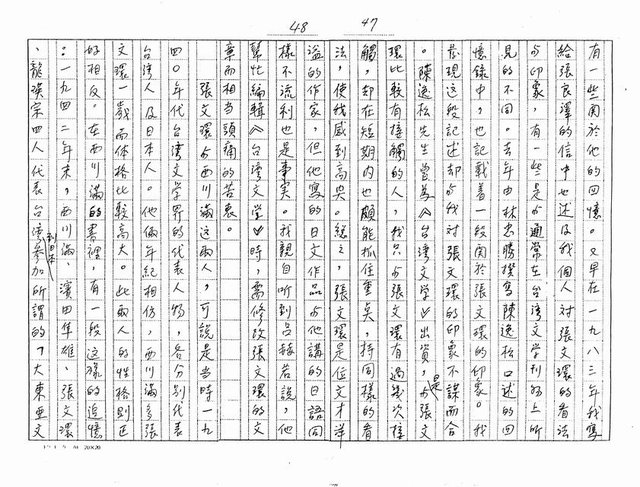 48 47
有一些關於他的回憶。又早在一九八三年我寫
給張良澤的信中也述及我個人對張文環的看法
与印象，有一些是与通常在台湾文学刊物上所
見的不同。去年由林忠勝撰寫陳逸松口述的回
憶錄中，也記載着一段関於張文環的印象。我
發現这段記述却与我対張文環的印象不謀而合
。陳逸松先生曾為《台湾文学》出資，是与張文
環比較有接觸的人，我只与張文環有過幾次接
觸，却在短期内也頗能抓住重奌，持同樣的看
法，使我感到高興。総之，張文環是位文才洋
溢的作家，但他寫的日文作品与他講的日語同
樣不流利也是事実。我親自听到呂赫若說，他
幫忙編輯《台湾文学》時，需修改張文環的文
章而相当頭痛的苦衷。
張文環与西川滿這兩人，可說是当時一九
四〇年代台湾文学界的代表人物，各分別代表
台湾人及日本人。他倆年紀相仿，西川滿多張
文環一歲而体格比較高大。此兩人的性格則正
好相反。在西川滿的書裡，有一段这樣的追憶
：一九四二年末，西川滿、濱田隼雄、張文環
、龍瑛宗四人代表台湾到日本參加所謂的「大東亜文